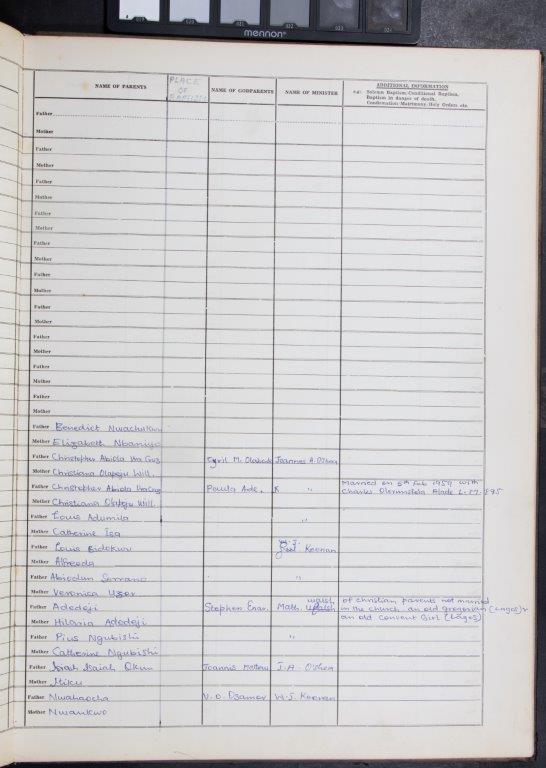 019 020 021 022 023 024
mennon
NAME OF PARENTS
PLACE OF BAPTISM
NAME OF GODPARENTS
NAME OF MINISTER
ADDITIONAL INFORMATION
e.g: Solemn Baptism; Conditional Baptism,
Baptism in danger of death,
Confirmation: Matrimony: Holy Orders etc.
Father
Mother
Father
Mother
Father
Mother
Father
Mother
Father
Mother
Father
Mother
Father
Mother
Father
Mother
Father
Mother
Father
Mother
Father Benedict
Mother Elizabeth
Father Christopher Abiola Joannes A. O'Shea
Mother Christiana Will.
Father Christopher Abiola Paula Ade. Married on 6th Feb 1959 with
Mother Christiana Will. Charles L. M. 595
Father Louis Adumila "
Mother Catherine Isa
Father Louis W. J. Keenan
Mother Alfreda
Father Abiodun Serrano "
Mother Veronica
Father Adedeji Stephen Math. Walsh of christian parents not married
in the church an old gregorian (Lagos) &
Mother Hilaria Adedeji an old Convent Girl (Lagos)
Father Pius Ngubishi "
Mother Catherine Ngubishi
Father Isaiah Okun Joannis Mathew J. A. O'Shea
Mother Miku
Father Nwahaocha V. O W. J. Keenan
Mother Nwankwo